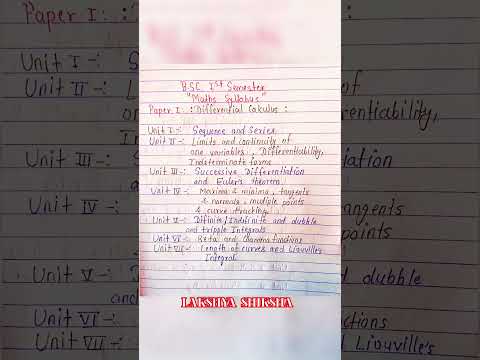 BSC Ist Semester
"Maths Syllabus"
Paper I : : Differential Calculus :
Unit I -: Sequence and Series
Unit II -: Limits and continuity of
one variables , Differentiability,
Indeterminate forms
Unit III -: Successive Differentiation
and Eulers theorem
Unit IV -: Maxima & minima, tangents
& normals, multiple points
& curve thracking
Unit V -: Difinite/Indifinite and dubble
and tripple Integrals
Unit VI -: Beta and Gamma functions
Unit VII -: Length of curves and Liouville's
Integral
LAKSHYA SHIKSHA
Paper I : :
Unit I -:
Unit II -:
entiability,
Unit III -:
iation
Unit IV -:
tangents
points
Unit V -:
dubble
Unit VI -:
ctions
Unit VII -:
Liouville's